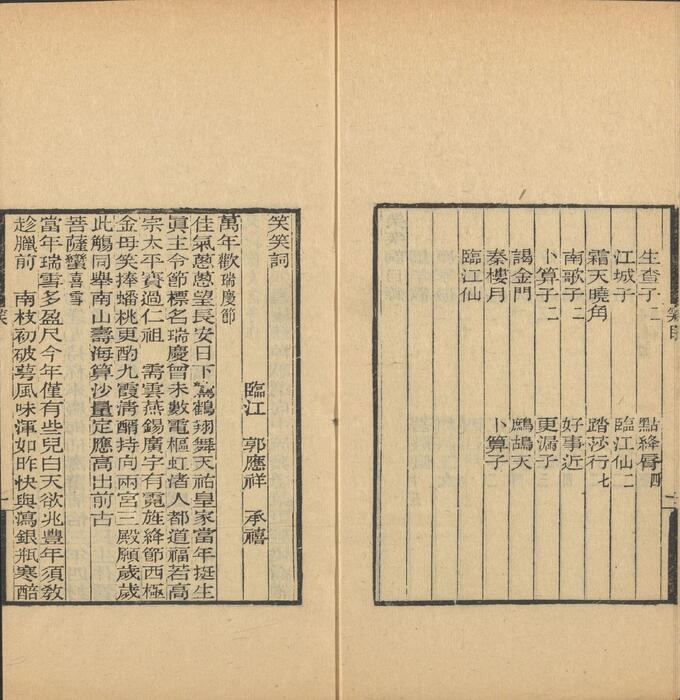 生查子二　點絳脣四
江城子　臨江仙二
霜天曉角　踏莎行七
南歌子二　好事近二
卜算子二　更漏子三
謁金門　鷓鴣天
秦樓月　卜算子
臨江仙
笑目
笑笑詞
臨江　郭應祥　承禧
萬年歡瑞慶節
佳氣蔥蔥望長安日下鸞鶴翔舞天祐皇家當年挺生
眞主令節標名瑞慶曾未數電樞虹渚人都道福若高
宗太平賽過仁祖　需雲燕錫廣宇有霓旌絳節西極
金母笑捧蟠桃更酌九霞淸醑持向兩宮三殿願歲歲
此觴同舉南山壽海算沙量定應高出前古
菩薩蠻喜雪
當年瑞雪多盈尺今年僅有些兒白天欲兆豐年須敎
趁臘前　南枝初破萼風味渾如昨快與瀉銀瓶寒醅
笑
一